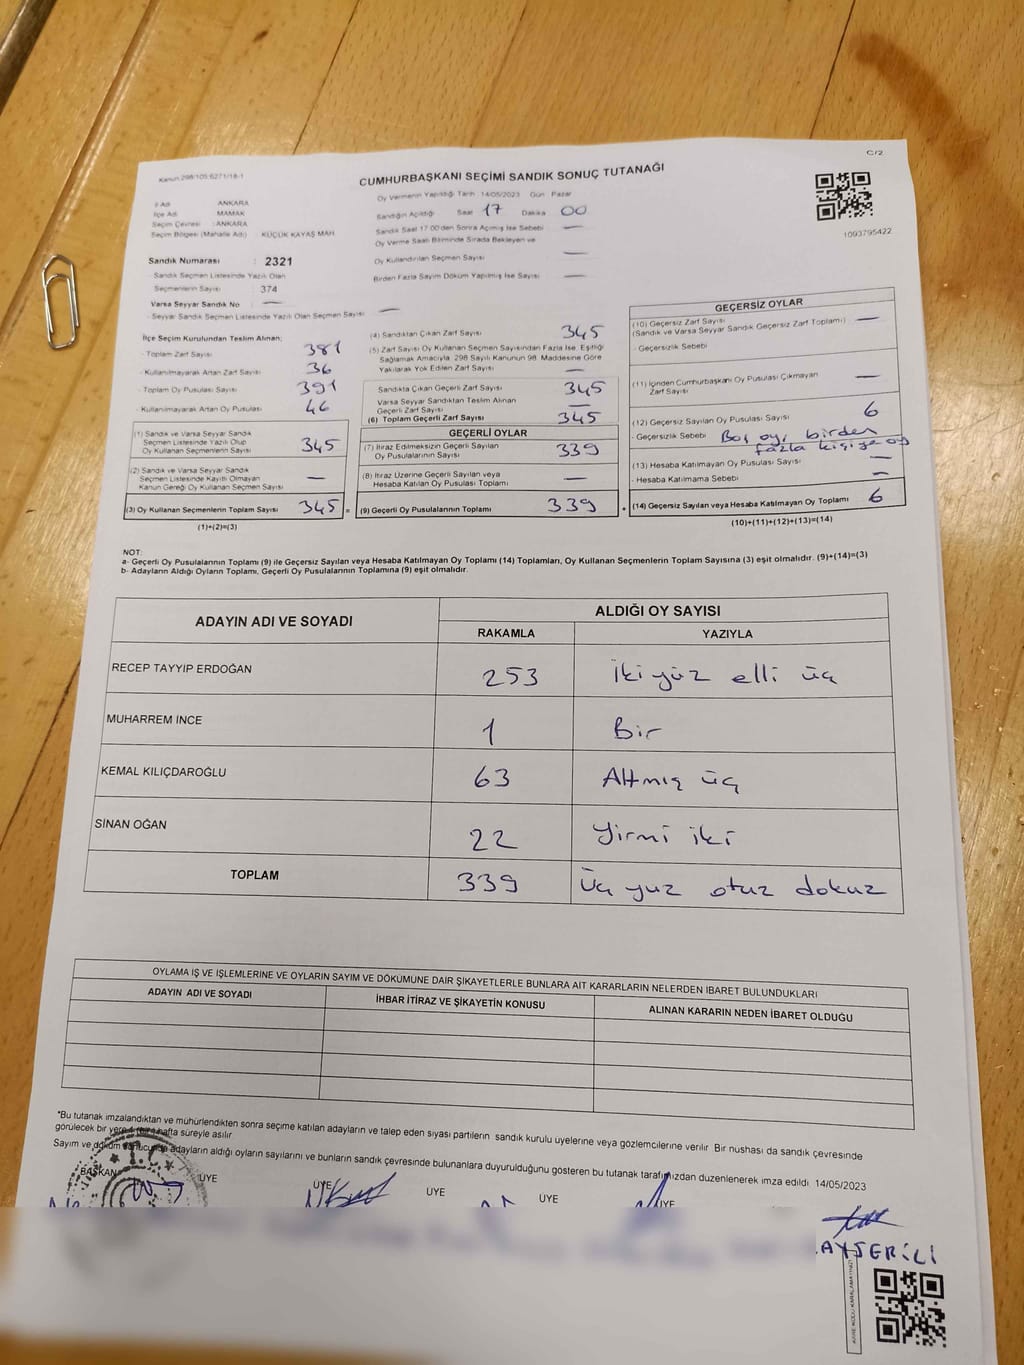 C/2
Kanun 298/105:6271/18-1
CUMHURBAŞKANI SEÇİMİ SANDIK SONUÇ TUTANAĞI
İl Adı : ANKARA
İlçe Adı : MAMAK
Seçim Çevresi : ANKARA
Seçim Bölgesi (Mahalle Adı) : KÜÇÜK KAYAŞ MAH.
Sandık Numarası : 2321
- Sandık Seçmen Listesinde Yazılı Olan
Seçmenlerin Sayısı : 374
Varsa Seyyar Sandık No : —
- Seyyar Sandık Seçmen Listesinde Yazılı Olan Seçmen Sayısı : —
Oy Vermenin Yapıldığı Tarih 14/05/2023 Gün Pazar
Sandığın Açıldığı Saat 17 Dakika 00
Sandık Saat 17:00'den Sonra Açılmış İse Sebebi —
Oy Verme Saati Bitiminde Sırada Bekleyen ve
Oy Kullandırılan Seçmen Sayısı —
Birden Fazla Sayım Döküm Yapılmış İse Sayısı —
1093795422
İlçe Seçim Kurulundan Teslim Alınan;
- Toplam Zarf Sayısı 381
- Kullanılmayarak Artan Zarf Sayısı : 36
- Toplam Oy Pusulası Sayısı 391
- Kullanılmayarak Artan Oy Pusulası 46
(1) Sandık ve Varsa Seyyar Sandık
Seçmen Listesinde Yazılı Olup
Oy Kullanan Seçmenlerin Sayısı 345
(2) Sandık ve Varsa Seyyar Sandık
Seçmen Listesinde Kayıtlı Olmayan
Kanun Gereği Oy Kullanan Seçmen Sayısı —
(3) Oy Kullanan Seçmenlerin Toplam Sayısı 345 =
(1)+(2)=(3)
(4) Sandıktan Çıkan Zarf Sayısı 345
(5) Zarf Sayısı Oy Kullanan Seçmen Sayısından Fazla İse, Eşitliği
Sağlamak Amacıyla, 298 Sayılı Kanunun 98. Maddesine Göre
Yakılarak Yok Edilen Zarf Sayısı —
Sandıkta Çıkan Geçerli Zarf Sayısı 345
Varsa Seyyar Sandıktan Teslim Alınan
Geçerli Zarf Sayısı —
(6) Toplam Geçerli Zarf Sayısı 345
GEÇERLİ OYLAR
(7) İtiraz Edilmeksizin Geçerli Sayılan
Oy Pusulalarının Sayısı 339
(8) İtiraz Üzerine Geçerli Sayılan veya
Hesaba Katılan Oy Pusulası Toplamı —
(9) Geçerli Oy Pusulalarının Toplamı 339 +
GEÇERSİZ OYLAR
(10) Geçersiz Zarf Sayısı —
(Sandık ve Varsa Seyyar Sandık Geçersiz Zarf Toplamı)
- Geçersizlik Sebebi
(11) İçinden Cumhurbaşkanı Oy Pusulası Çıkmayan
Zarf Sayısı —
(12) Geçersiz Sayılan Oy Pusulası Sayısı 6
- Geçersizlik Sebebi Boş oy, birden
fazla kişiye oy
(13) Hesaba Katılmayan Oy Pusulası Sayısı —
- Hesaba Katılmama Sebebi —
(14) Geçersiz Sayılan veya Hesaba Katılmayan Oy Toplamı 6
(10)+(11)+(12)+(13)=(14)
NOT:
a- Geçerli Oy Pusulalarının Toplamı (9) ile Geçersiz Sayılan veya Hesaba Katılmayan Oy Toplamı (14) Toplamları, Oy Kullanan Seçmenlerin Toplam Sayısına (3) eşit olmalıdır. (9)+(14)=(3)
b- Adayların Aldığı Oyların Toplamı, Geçerli Oy Pusulalarının Toplamına (9) eşit olmalıdır.
ADAYIN ADI VE SOYADI ALDIĞI OY SAYISI
RAKAMLA YAZIYLA
RECEP TAYYIP ERDOĞAN 253 iki yüz elli üç
MUHARREM İNCE 1 Bir
KEMAL KILIÇDAROĞLU 63 Altmış üç
SİNAN OĞAN 22 Yirmi iki
TOPLAM 339 üç yuz otuz dokuz
OYLAMA İŞ VE İŞLEMLERİNE VE OYLARIN SAYIM VE DÖKÜMÜNE DAİR ŞİKAYETLERLE BUNLARA AİT KARARLARIN NELERDEN İBARET BULUNDUKLARI
ADAYIN ADI VE SOYADI İHBAR İTİRAZ VE ŞİKAYETİN KONUSU ALINAN KARARIN NEDEN İBARET OLDUĞU
*Bu tutanak imzalandıktan ve mühürlendikten sonra seçime katılan adayların ve talep eden siyasi partilerin sandık kurulu üyelerine veya gözlemcilerine verilir. Bir nüshası da sandık çevresinde
görülecek bir yere hafta süreyle asılır
Sayım ve döküm sonucunda adayların aldığı oyların sayılarını ve bunların sandık çevresinde bulunanlara duyurulduğunu gösteren bu tutanak tarafımızdan düzenlenerek imza edildi. 14/05/2023
BAŞKAN ÜYE ÜYE ÜYE ÜYE ÜYE
T.C.
AYSERİLİ